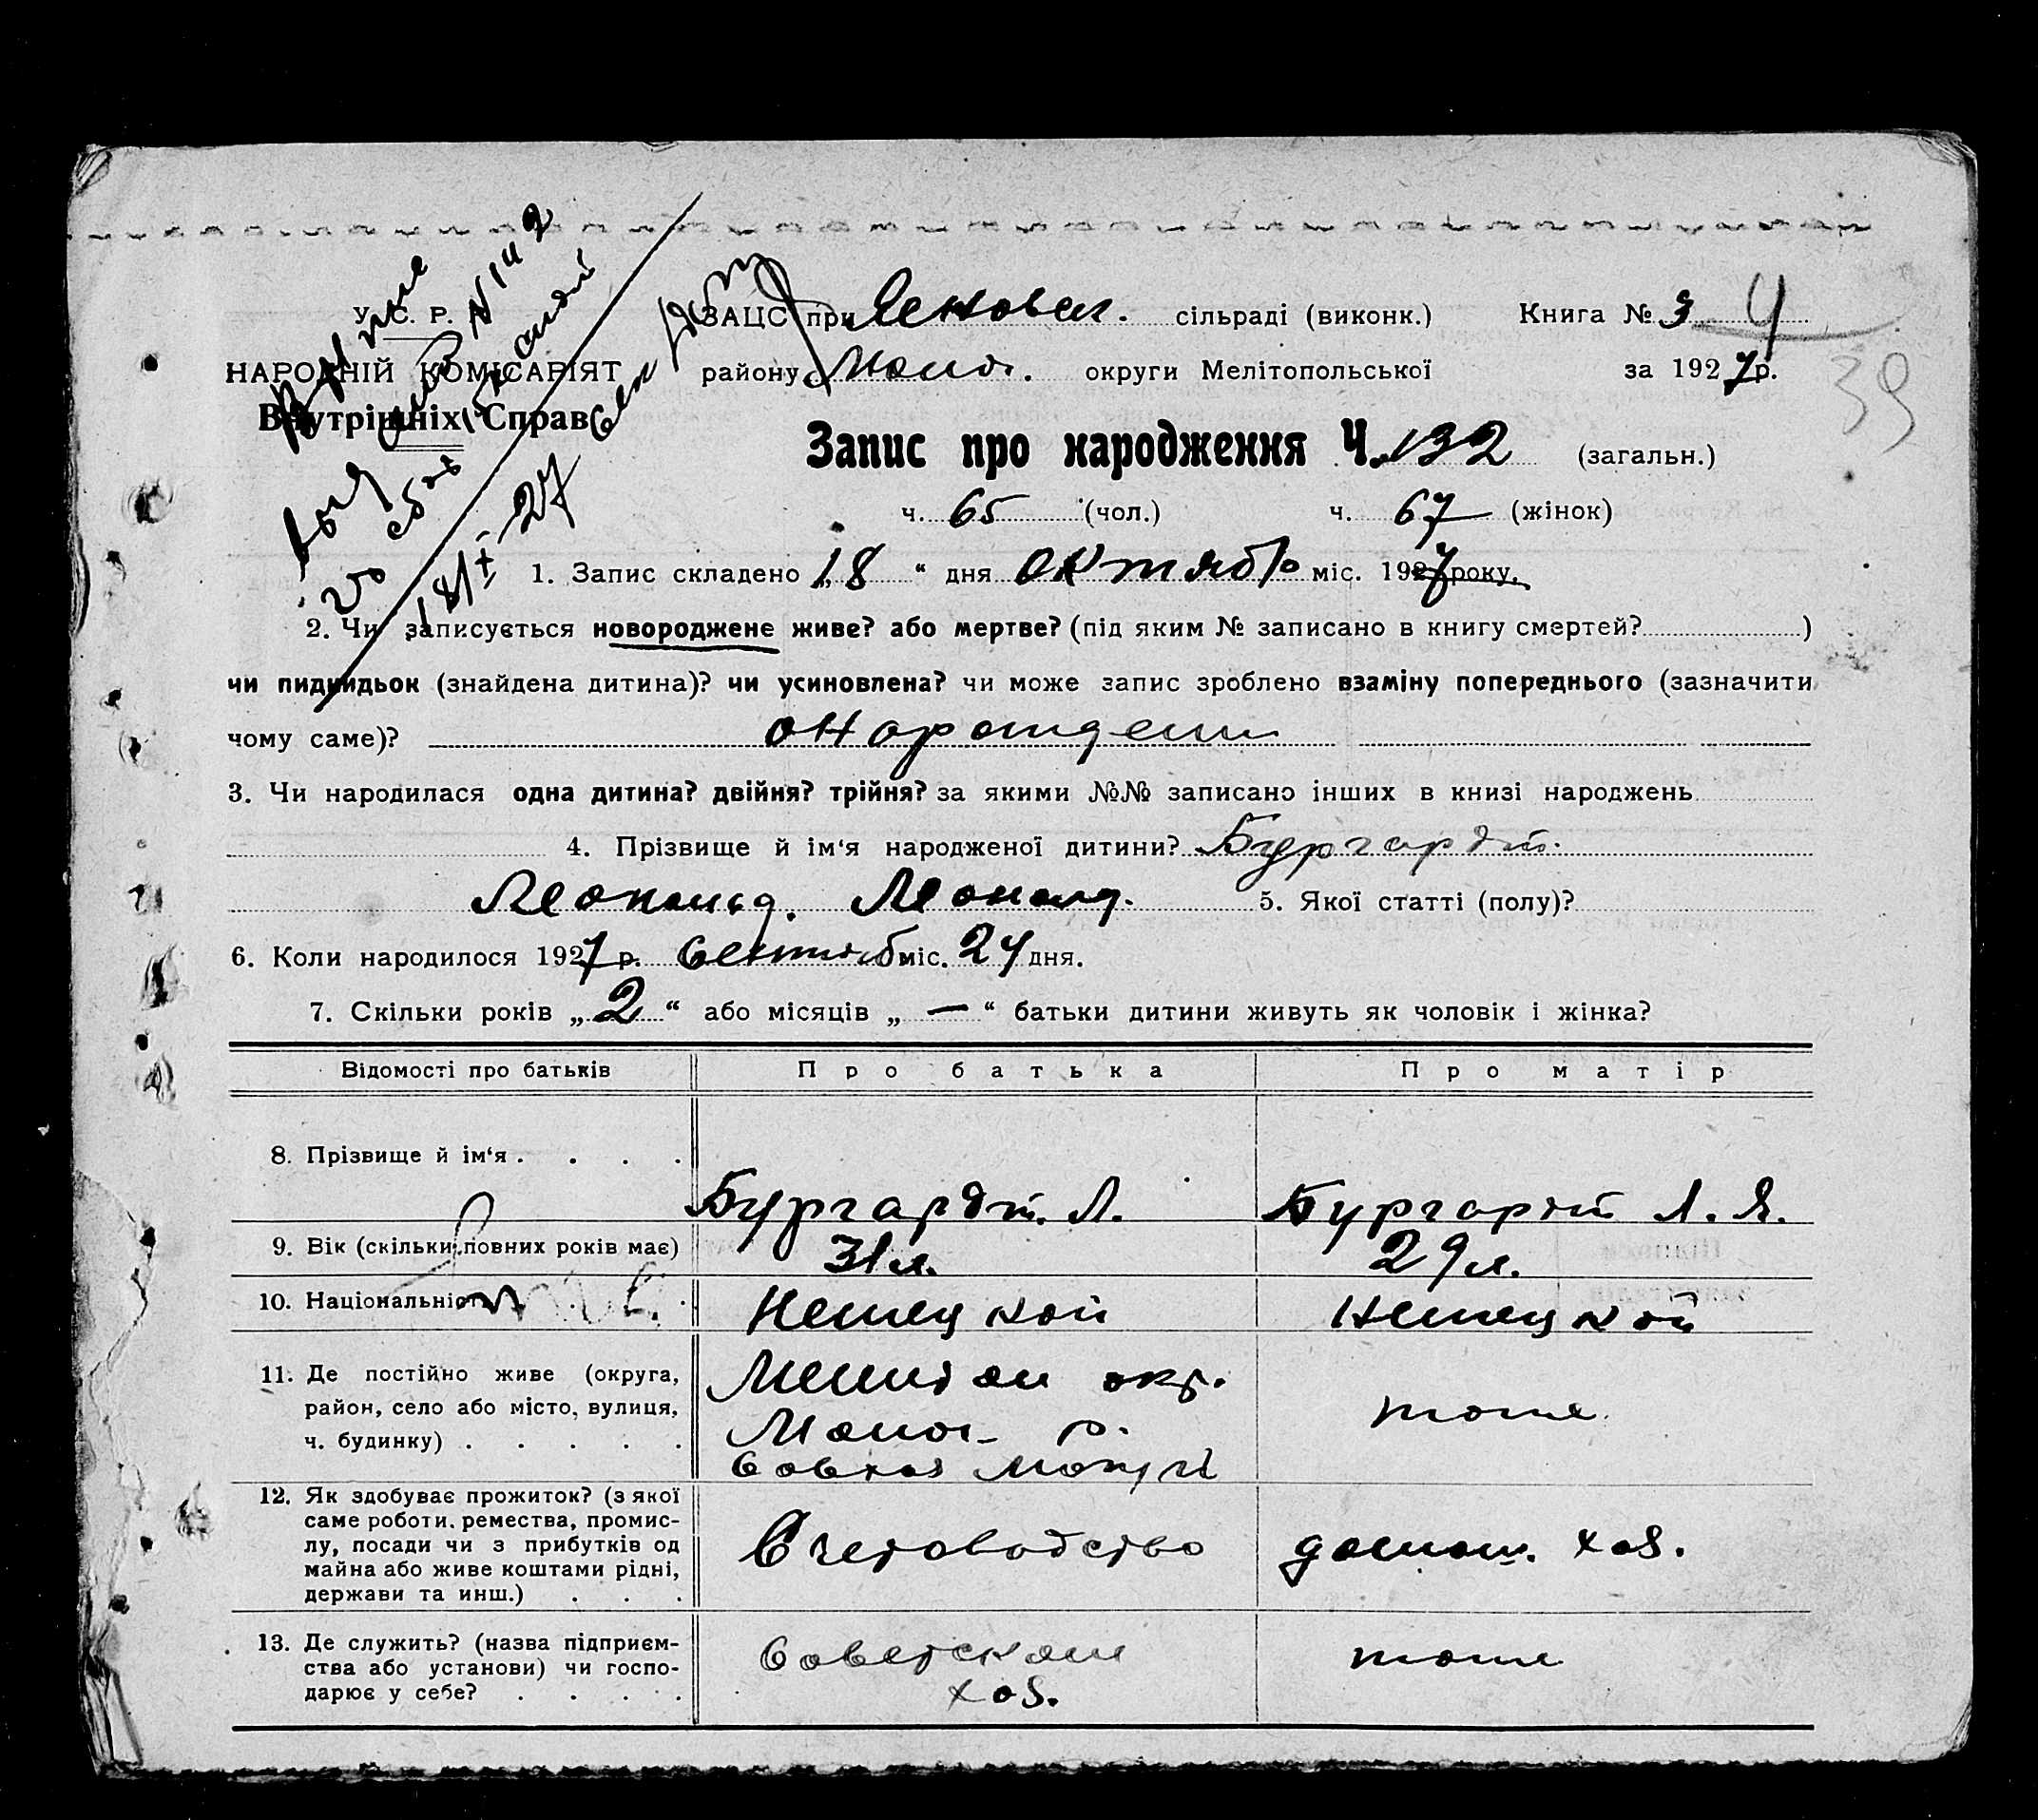 У. С. Р. Р.
НАРОДНІЙ КОМІСАРІЯТ
Внутрішніх Справ
18/X-27
ЗАЦС при сільраді (виконк.) Книга № 3 4
району Молоч. округи Мелітопольської за 1927 р.
39
Запис про народження Ч. 132 (загальн.)
ч. 65 (чол.) ч. 67 (жінок)
1. Запис складено „18“ дня октябр міс. 1927 року.
2. Чи записується новороджене живе? або мертве? (під яким № записано в книгу смертей? )
чи пидкидьок (знайдена дитина)? чи усиновлена? чи може запис зроблено взаміну попереднього (зазначити
чому саме)? о нарождении
3. Чи народилася одна дитина? двійня? трійня? за якими №№ записано інших в книзі народжень
4. Прізвище й ім‘я народженої дитини? Бургардт.
Леопольд. Леопольд. 5. Якої статті (полу)?
6. Коли народилося 1927 р. Сентяб міс. 24 дня.
7. Скільки років „2“ або місяців „—“ батьки дитини живуть як чоловік і жінка?
Відомості про батьків Про батька Про матір
8. Прізвище й ім‘я . . . . Бургардт. Л. Бургардт Л. Я.
9. Вік (скільки повних років має) 31 л. 29 л.
10. Національність Немецкой Немецкой
11. Де постійно живе (округа, район, село або місто, вулиця, ч. будинку) . . . . .
Мелитоп окр.
Молоч. р.
Совхоз
тоже.
12. Як здобуває прожиток? (з якої саме роботи, ремества, промислу, посади чи з прибутків од майна або живе коштами рідні, держави та инш.) . . .
Счетоводство домаш. хоз.
13. Де служить? (назва підприємства або установи) чи господарює у себе? . . . .
Советском
хоз.
тоже